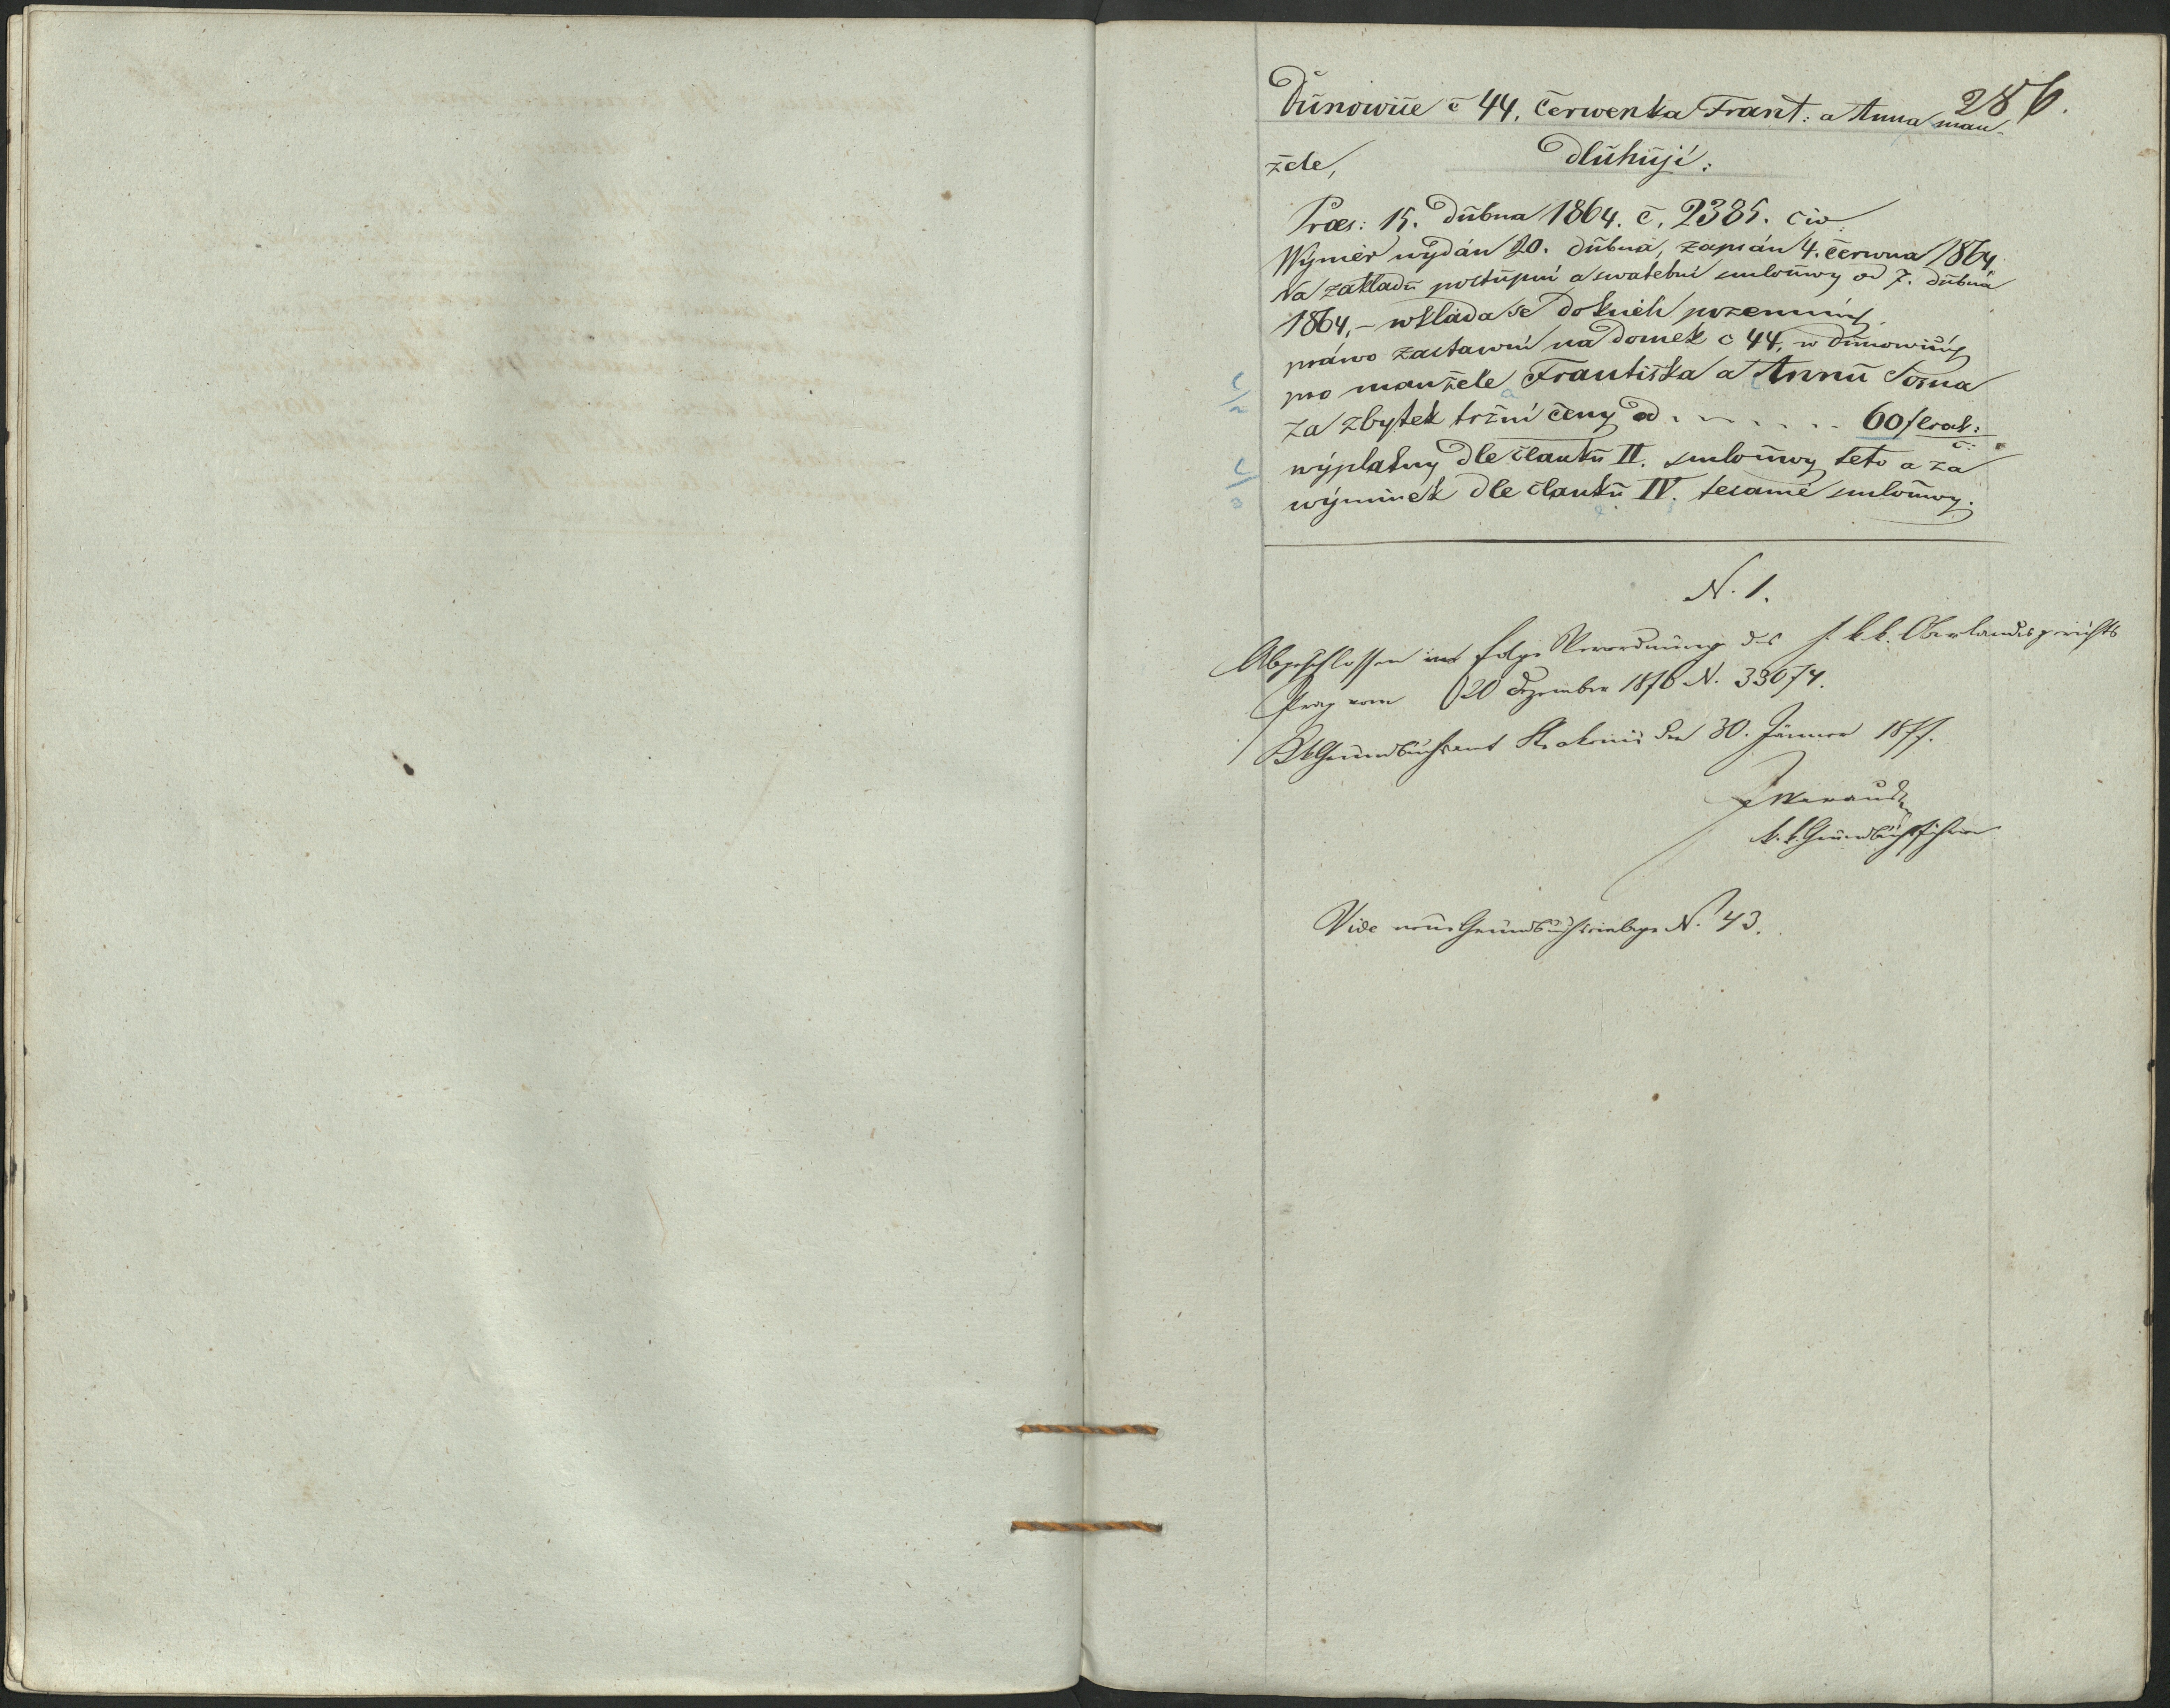 286.
Dunowice č 44, Červenka Frant: a Anna man-
žele,
Dluhují:
Præs: 15. dubna 1864. č. 2385. civ.
Wýměr wydán 20. dubna, zapsán 4. června 1864
Na základu postupní a swatební smlouwy od 7. dubna
1864, – wkláda se do knich pozemních
práwo zástawní na domek č 44, w Dunowicích
pro manžele Františka a Annu
za zbytek tržní ceny od . . . . . . 60 f
wýplatny dle článku II. smlouwy této a za
wýminek dle článku IV. tesamé smlouwy.
N. 1.
Abgeschlossen in folge Verordnung des h. k. k. Oberlandesgerichts
Prag vom 20 Dezember 1876 N. 33074.
KkGrundbuchsamt Strakonic den 30. Jänner 1877.
k. k. Grundbuchsführer
Vide neue Grundbuchseinlage N. 43.